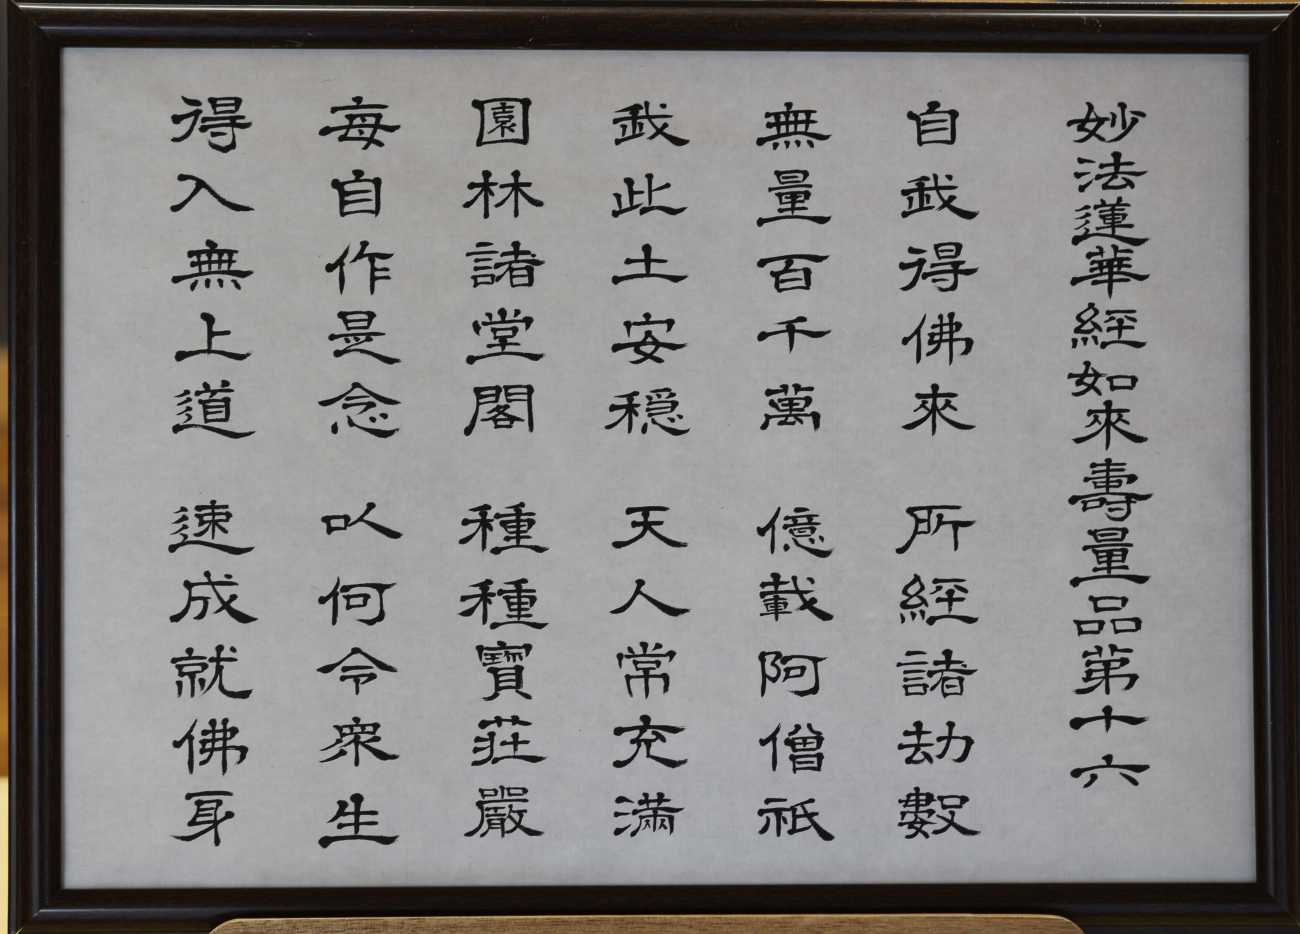 妙法蓮華經如來壽量品第十六
自我得佛來 所經諸劫數
無量百千萬 億載阿僧祇
我此土安穩 天人常充滿
園林諸堂閣 種種寶莊嚴
每自作是念 以何令眾生
得入無上道 速成就佛身